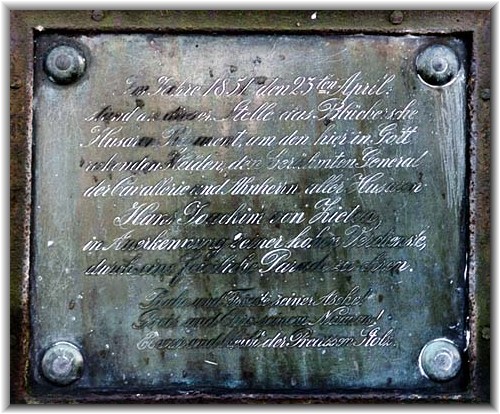 Im Jahre 1851 den 23ten April
stand an dieser Stelle das Blücher'sche
Husaren Regiment, um den hier in Gott
ruhenden Helden, den berühmten General
der Cavallerie und Ahnherrn aller Husaren
Hans Joachim von Zieten,
in Anerkennung seiner hohen Verdienste,
durch eine feierliche Parade zu ehren.
Ruhe und Friede seiner Asche!
und seinem Namen!
der Preussen Stolz.